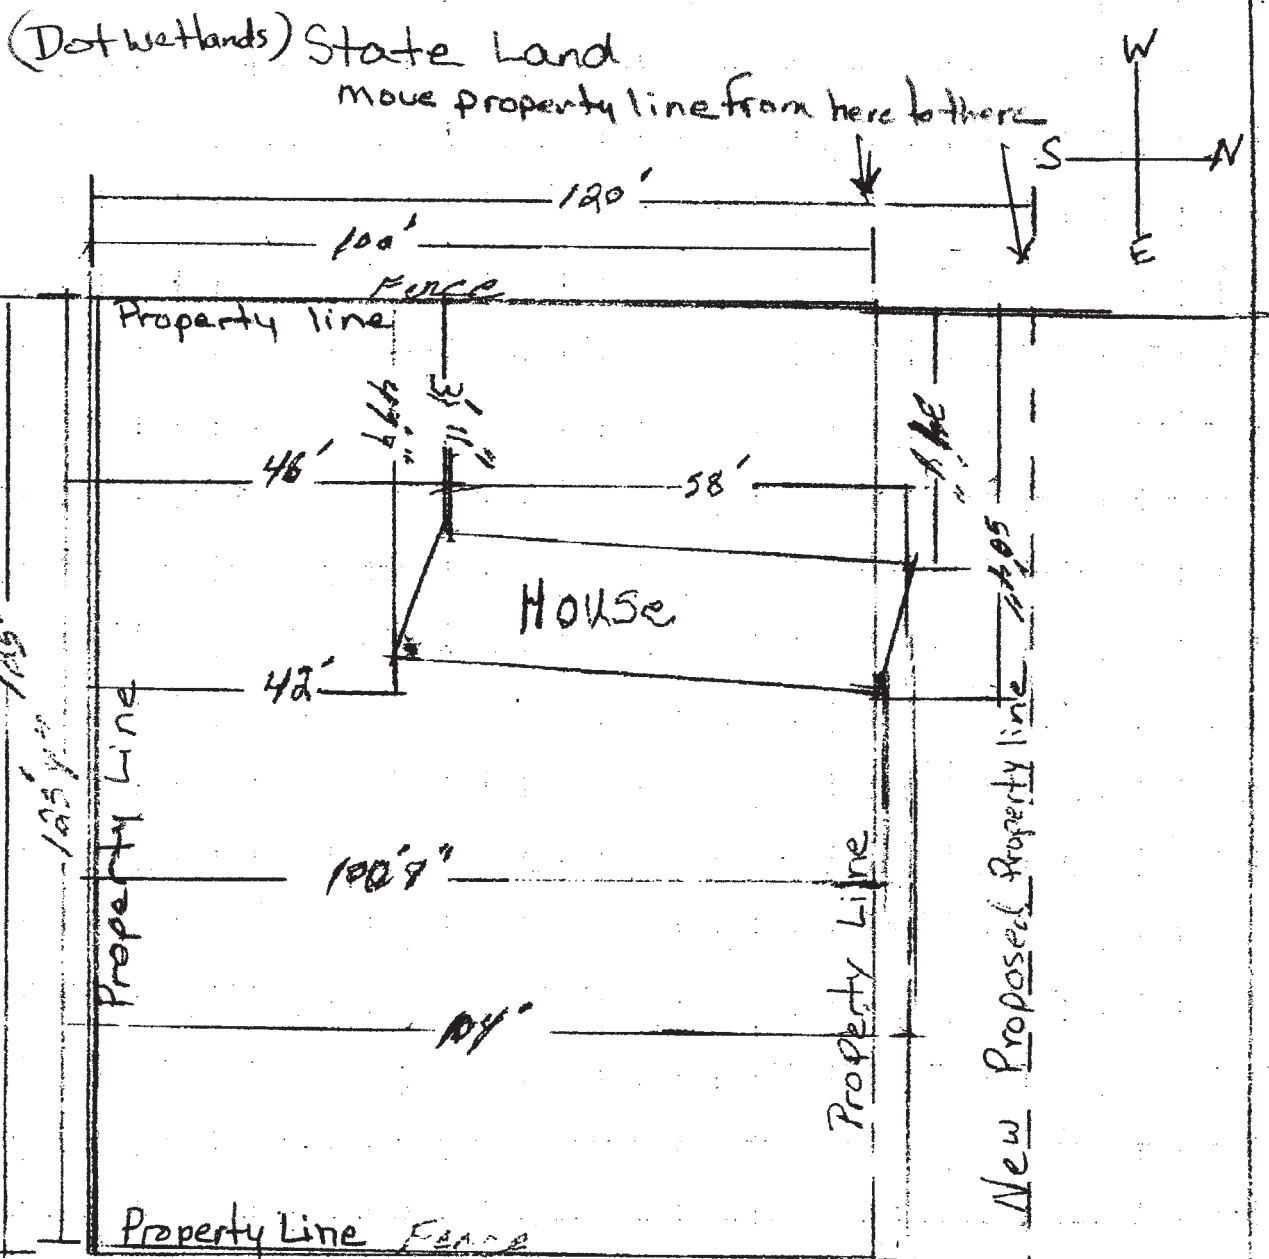 (Dot wetlands) State Land
move property line from here to there
W
S
N
E
120'
100'
Fence
Property line
46'
58'
House
42'
Property Line
100'9"
104'
Property Line
New Proposed Property line
Property Line Fence